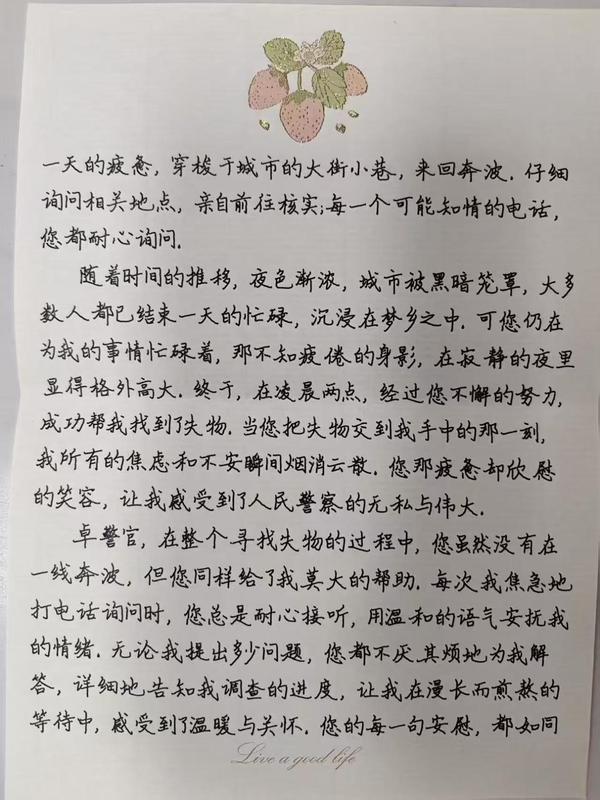 一天的疲惫，穿梭于城市的大街小巷，来回奔波．仔细
询问相关地点，亲自前往核实；每一个可能知情的电话，
您都耐心询问．
随着时间的推移，夜色渐浓，城市被黑暗笼罩，大多
数人都已结束一天的忙碌，沉浸在梦乡之中．可您仍在
为我的事情忙碌着，那不知疲倦的身影，在寂静的夜里
显得格外高大．终于，在凌晨两点，经过您不懈的努力，
成功帮我找到了失物．当您把失物交到我手中的那一刻，
我所有的焦虑和不安瞬间烟消云散．您那疲惫却欣慰
的笑容，让我感受到了人民警察的无私与伟大．
卓警官，在整个寻找失物的过程中，您虽然没有在
一线奔波，但您同样给了我莫大的帮助．每次我焦急地
打电话询问时，您总是耐心接听，用温和的语气安抚我
的情绪．无论我提出多少问题，您都不厌其烦地为我解
答，详细地告知我调查的进度，让我在漫长而煎熬的
等待中，感受到了温暖与关怀．您的每一句安慰，都如同
Live a good life